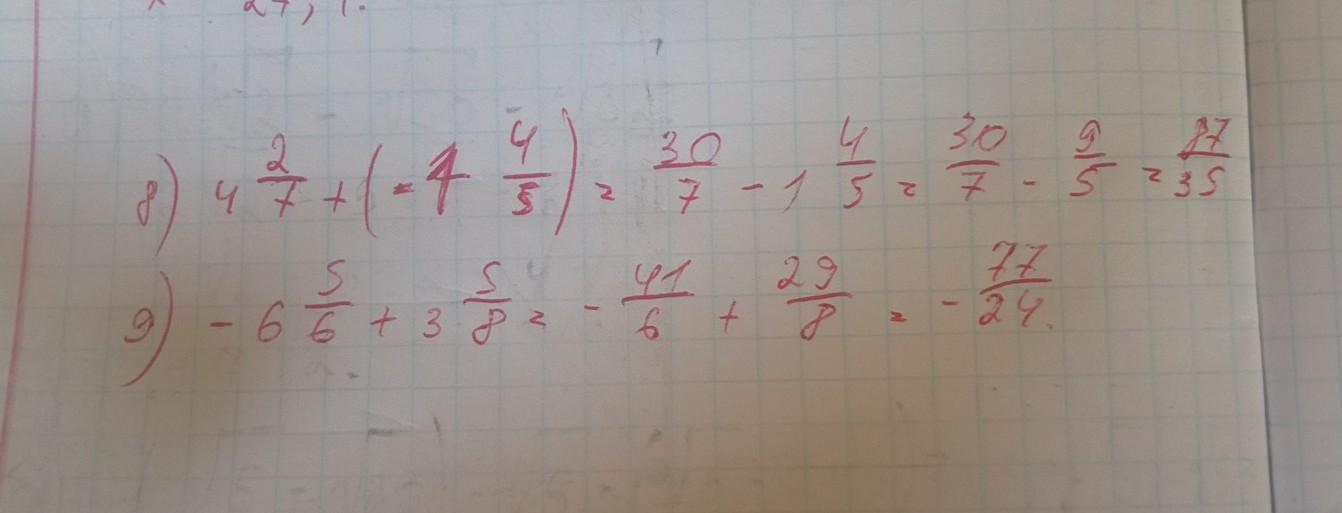 27, 1.
8) 4 2/7 + (-1 4/5) = 30/7 - 1 4/5 = 30/7 - 9/5 = 87/35
9) - 6 5/6 + 3 5/8 = - 41/6 + 29/8 = - 77/24.